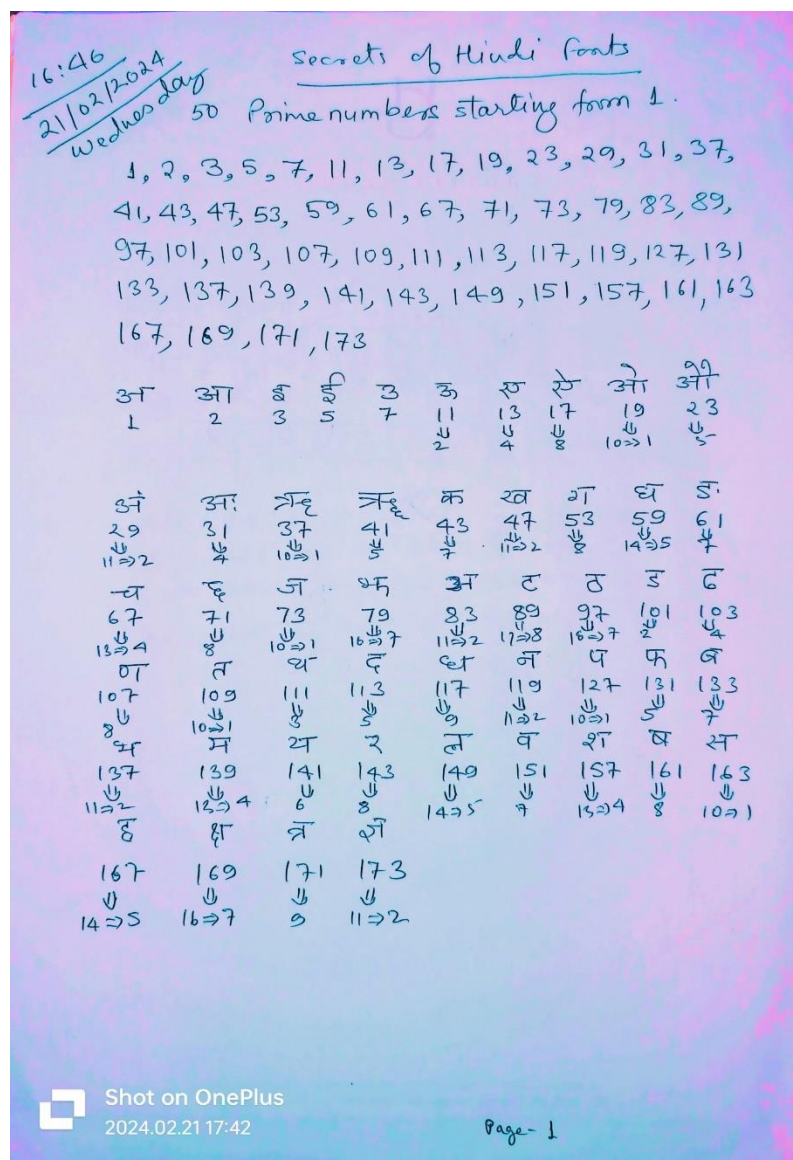 16:46
21/02/2024
Wednesday
Secrets of Hindi Fonts
50 Prime numbers starting from 1.
1, 2, 3, 5, 7, 11, 13, 17, 19, 23, 29, 31, 37,
41, 43, 47, 53, 59, 61, 67, 71, 73, 79, 83, 89,
97, 101, 103, 107, 109, 111, 113, 117, 119, 127, 131
133, 137, 139, 141, 143, 149, 151, 157, 161, 163
167, 169, 171, 173
अ आ इ ई उ ऊ ए ऐ ओ औ
1 2 3 5 7 11 13 17 19 23
⇓ ⇓ ⇓ ⇓ ⇓
2 4 8 10⇒1 5
अं अः ऋ ॠ क ख ग घ ङ
29 31 37 41 43 47 53 59 61
⇓ ⇓ ⇓ ⇓ ⇓ ⇓ ⇓ ⇓ ⇓
11⇒2 4 10⇒1 5 7 11⇒2 8 14⇒5 7
च छ ज झ ञ ट ठ ड ढ
67 71 73 79 83 89 97 101 103
⇓ ⇓ ⇓ ⇓ ⇓ ⇓ ⇓ ⇓ ⇓
13⇒4 8 10⇒1 16⇒7 11⇒2 17⇒8 16⇒7 2 4
ण त थ द ध न प फ ब
107 109 111 113 117 119 127 131 133
⇓ ⇓ ⇓ ⇓ ⇓ ⇓ ⇓ ⇓ ⇓
8 10⇒1 3 5 9 11⇒2 10⇒1 5 7
भ म य र ल व श ष स
137 139 141 143 149 151 157 161 163
⇓ ⇓ ⇓ ⇓ ⇓ ⇓ ⇓ ⇓ ⇓
11⇒2 13⇒4 6 8 14⇒5 7 13⇒4 8 10⇒1
ह क्ष त्र
167 169 171 173
⇓ ⇓ ⇓ ⇓
14⇒5 16⇒7 9 11⇒2
Shot on OnePlus
2024.02.21 17:42
Page- 1